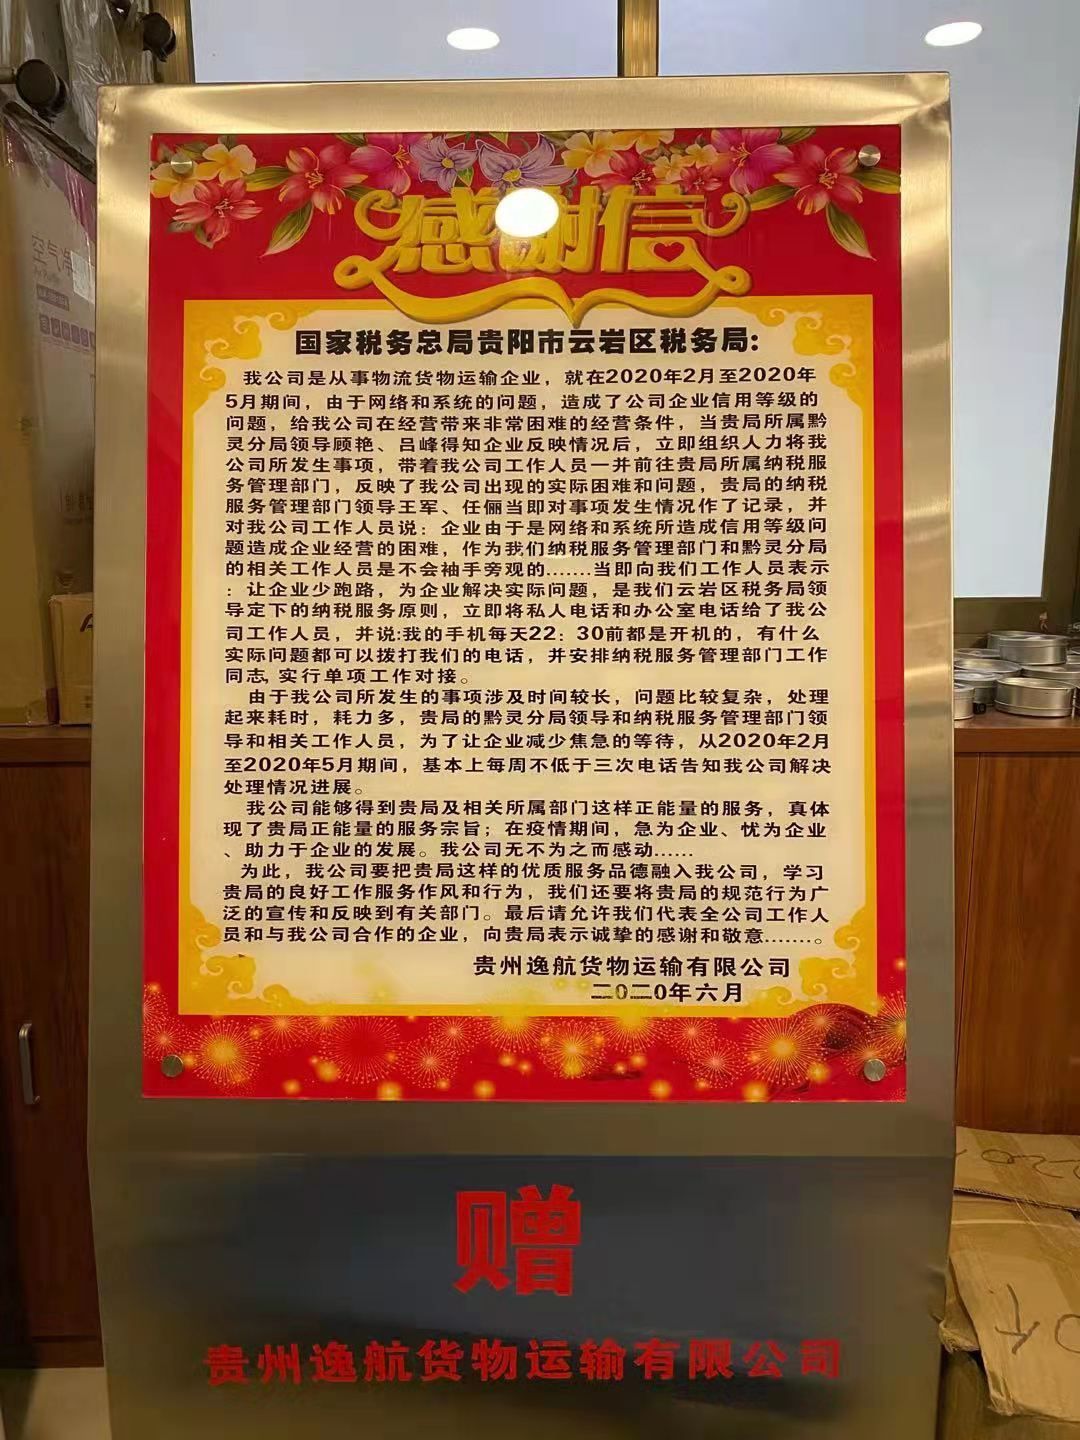 感谢信
国家税务总局贵阳市云岩区税务局:
我公司是从事物流货物运输企业，就在2020年2月至2020年
5月期间，由于网络和系统的问题，造成了公司企业信用等级的
问题，给我公司在经营带来非常困难的经营条件，当贵局所属黔
灵分局领导顾艳、吕峰得知企业反映情况后，立即组织人力将我
公司所发生事项，带着我公司工作人员一并前往贵局所属纳税服
务管理部门，反映了我公司出现的实际困难和问题，贵局的纳税
服务管理部门领导王军、任俪当即对事项发生情况作了记录，并
对我公司工作人员说：企业由于是网络和系统所造成信用等级问
题造成企业经营的困难，作为我们纳税服务管理部门和黔灵分局
的相关工作人员是不会袖手旁观的.......当即向我们工作人员表示
：让企业少跑路，为企业解决实际问题，是我们云岩区税务局领
导定下的纳税服务原则，立即将私人电话和办公室电话给了我公
司工作人员，并说:我的手机每天22：30前都是开机的，有什么
实际问题都可以拨打我们的电话，并安排纳税服务管理部门工作
同志,实行单项工作对接。
由于我公司所发生的事项涉及时间较长，问题比较复杂，处理
起来耗时，耗力多，贵局的黔灵分局领导和纳税服务管理部门领
导和相关工作人员，为了让企业减少焦急的等待，从2020年2月
至2020年5月期间，基本上每周不低于三次电话告知我公司解决
处理情况进展。
我公司能够得到贵局及相关所属部门这样正能量的服务，真体
现了贵局正能量的服务宗旨；在疫情期间，急为企业、忧为企业
、助力于企业的发展。我公司无不为之而感动......
为此，我公司要把贵局这样的优质服务品德融入我公司，学习
贵局的良好工作服务作风和行为，我们还要将贵局的规范行为广
泛的宣传和反映到有关部门。最后请允许我们代表全公司工作人
员和与我公司合作的企业，向贵局表示诚挚的感谢和敬意.......。
贵州逸航货物运输有限公司
二0二0年六月
赠
贵州逸航货物运输有限公司
空气净